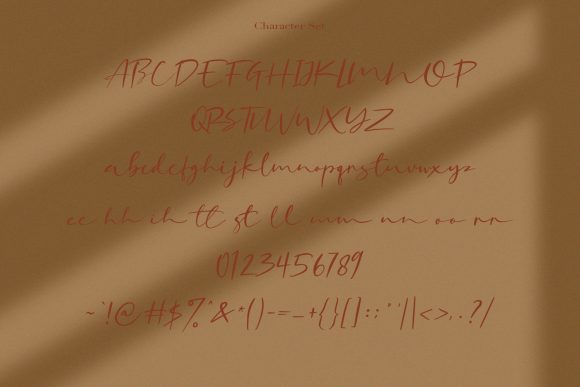 Character Set
ABCDEFGHIJKLMNOP
QRSTUVWXYZ
abcdefghijklmnopqrstuvwxyz
ee hh ih tt st ll mm nn oo rr
0123456789
~`!@#$%^&*()-=_+{}[]:;"'||<>,.?/